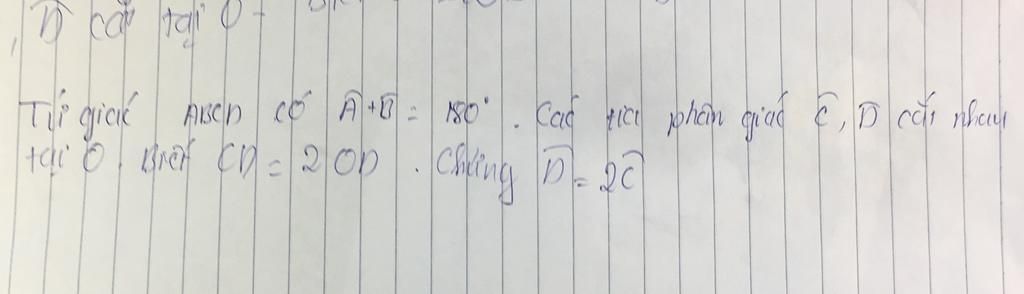 D̂ cắt tại O
Tứ giác ABCD có Â + B̂ = 180°. Các tia phân giác Ĉ, D̂ cắt nhau
tại O. Biết CD = 2 OD. Chứng D̂ = 2Ĉ